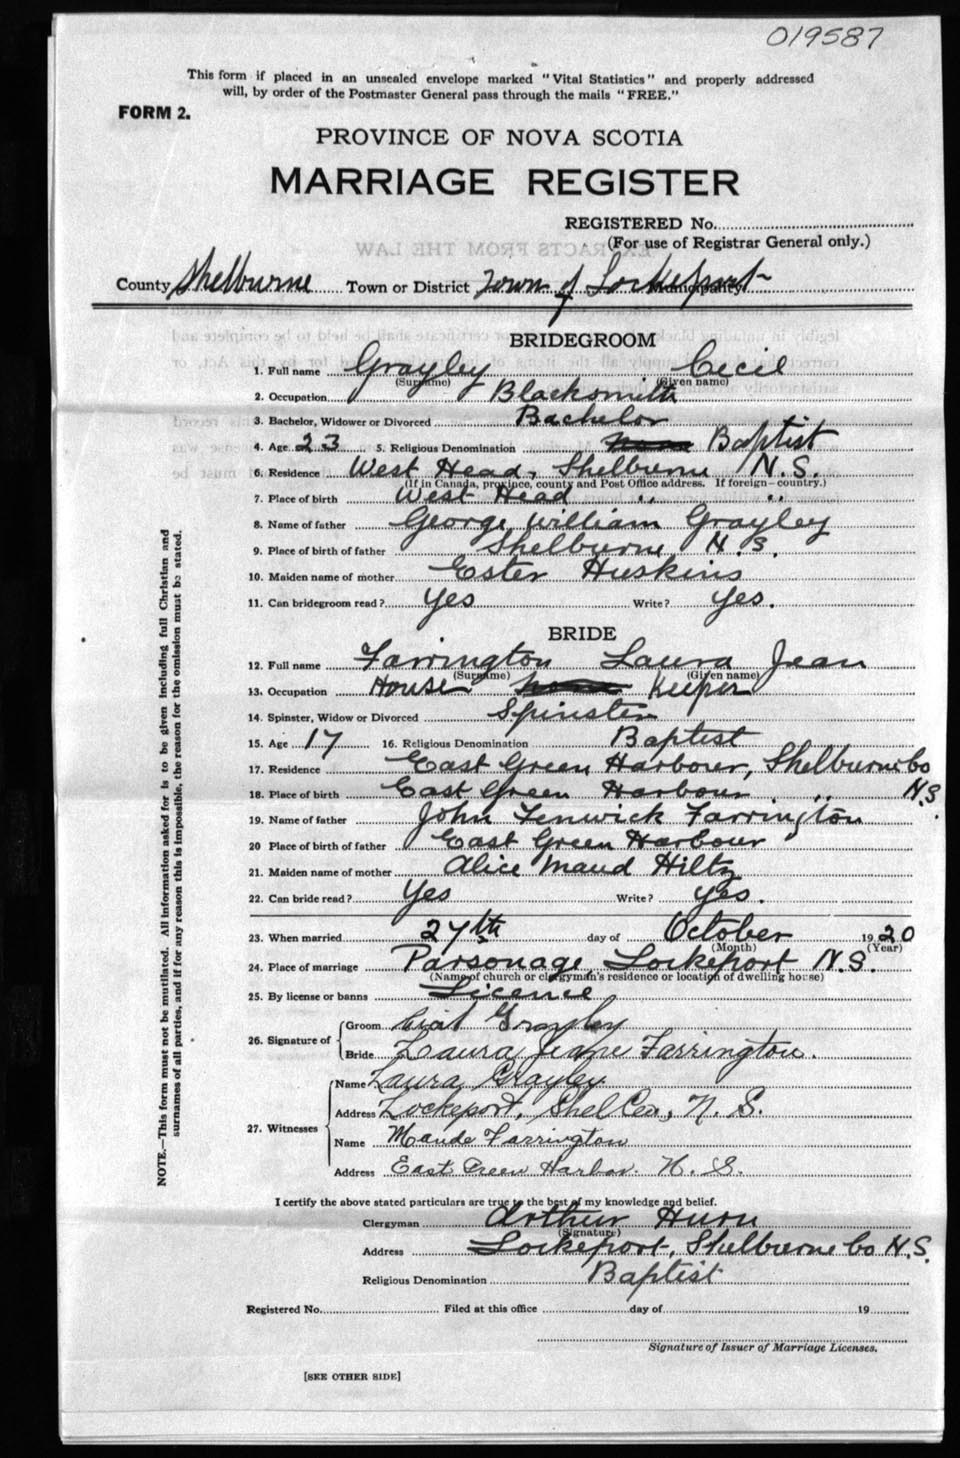 019587
This form if placed in an unsealed envelope marked "Vital Statistics" and properly addressed
will, by order of the Postmaster General pass through the mails "FREE."
FORM 2.
PROVINCE OF NOVA SCOTIA
MARRIAGE REGISTER
REGISTERED No.
(For use of Registrar General only.)
EXTRACTS FROM THE LAW
County Shelburne Town or District Town of Lockeport Municipality
BRIDEGROOM
1. Full name Grayley Cecil
(Surname) (Given name)
2. Occupation Blacksmith
3. Bachelor, Widower or Divorced Bachelor
4. Age 23 5. Religious Denomination Baptist
6. Residence West Head, Shelburne N.S.
(If in Canada, province, county and Post Office address. If foreign—country.)
7. Place of birth West Head " "
8. Name of father George William Grayley
9. Place of birth of father Shelburne N.S.
10. Maiden name of mother Ester Huskins
11. Can bridegroom read? Yes Write? Yes.
BRIDE
12. Full name Farrington Laura Jean
(Surname) (Given name)
13. Occupation House Keeper
14. Spinster, Widow or Divorced Spinster
15. Age 17 16. Religious Denomination Baptist
17. Residence East Green Harbour, Shelburne Co
N.S
18. Place of birth East Green Harbour " "
19. Name of father John Fenwick Farrington
20 Place of birth of father East Green Harbour
21. Maiden name of mother Alice Maud Hiltz
22. Can bride read? Yes Write? Yes.
23. When married 27th day of October 1920
(Month) (Year)
24. Place of marriage Parsonage, Lockeport N.S.
(Name of church or clergyman's residence or location of dwelling house)
25. By license or banns Licence
26. Signature of Groom Cecil Grayley
Bride Laura Jeane Farrington.
27. Witnesses Name Laura Grayley
Address Lockeport, Shel Co, N.S.
Name Maude Farrington
Address East Green Harbor N.S.
I certify the above stated particulars are true to the best of my knowledge and belief.
Clergyman Arthur Huru
(Signature)
Address Lockeport, Shelburne Co N.S.
Religious Denomination Baptist
Registered No. Filed at this office day of 19
Signature of Issuer of Marriage Licenses.
[SEE OTHER SIDE]
NOTE.—This form must not be mutilated. All information asked for is to be given including full Christian and
surnames of all parties, and if for any reason this is impossible, the reason for the omission must be stated.